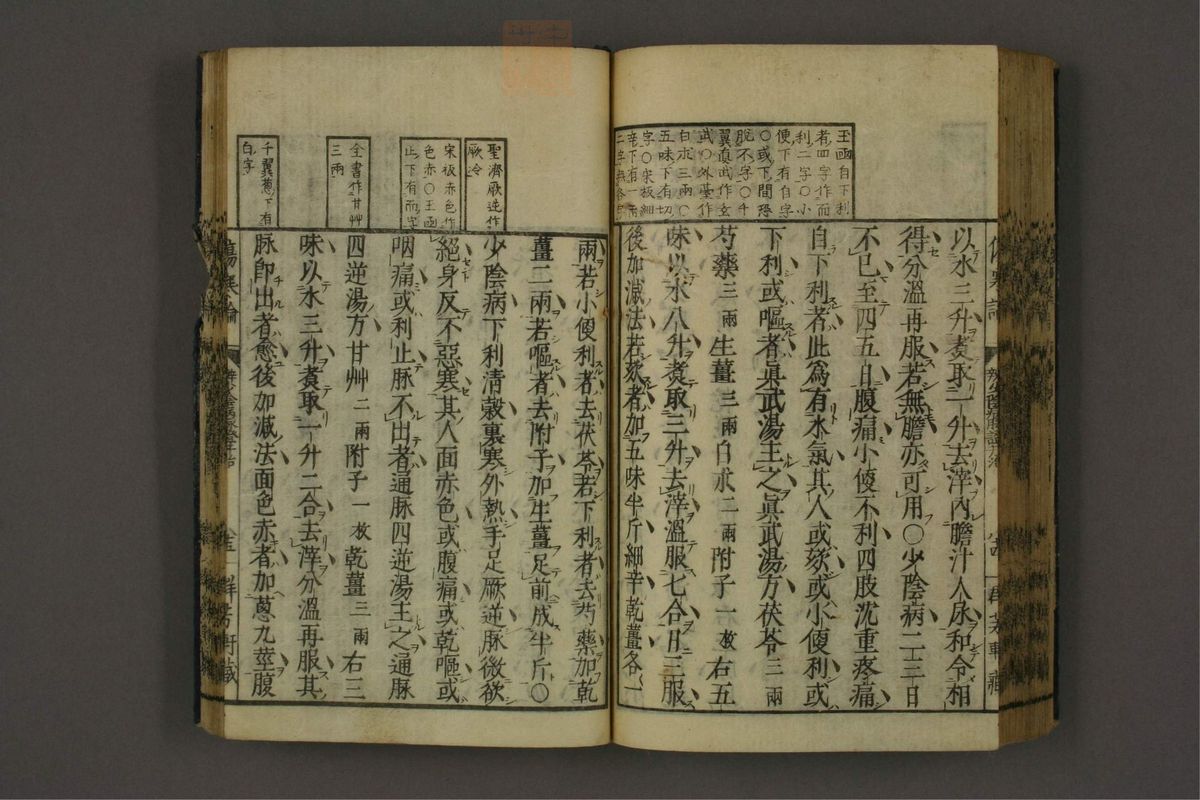 玉函自下利
者四字作而
利二字〇小
便下有自字
〇或下間恐
脫不字〇千
翼眞武作玄
武〇外臺作
白朮三兩〇
五味下有切
字〇宋板細
辛下有一兩
二字無各字
以水三升煑取一升去滓內膽汁人尿和令相
得分溫再服若無膽亦可用〇少陰病二三日
不已至四五日腹痛小便不利四肢沈重疼痛
自下利者此爲有水氣其人或欬或小便利或
下利或嘔者眞武湯主之眞武湯方茯苓三兩
芍藥三兩生薑三兩白朮二兩附子一枚右五
味以水八升煑取三升去滓溫服七合日三服
後加減法若欬者加五味半斤細辛乾薑各一
聖濟厥逆作
厥冷
宋板赤色作
色赤〇玉函
止下有而字
全書作甘艸
三兩
千翼葱下有
白字
兩若小便利者去茯苓若下利者去芍藥加乾
薑二兩若嘔者去附子加生薑足前成半斤〇
少陰病下利清穀裏寒外熱手足厥逆脉微欲
絕身反不惡寒其人面赤色或腹痛或乾嘔或
咽痛或利止脉不出者通脉四逆湯主之通脉
四逆湯方甘艸二兩附子一枚乾薑三兩右三
味以水三升煑取一升二合去滓分溫再服其
脉卽出者愈後加減法面色赤者加蔥九莖腹